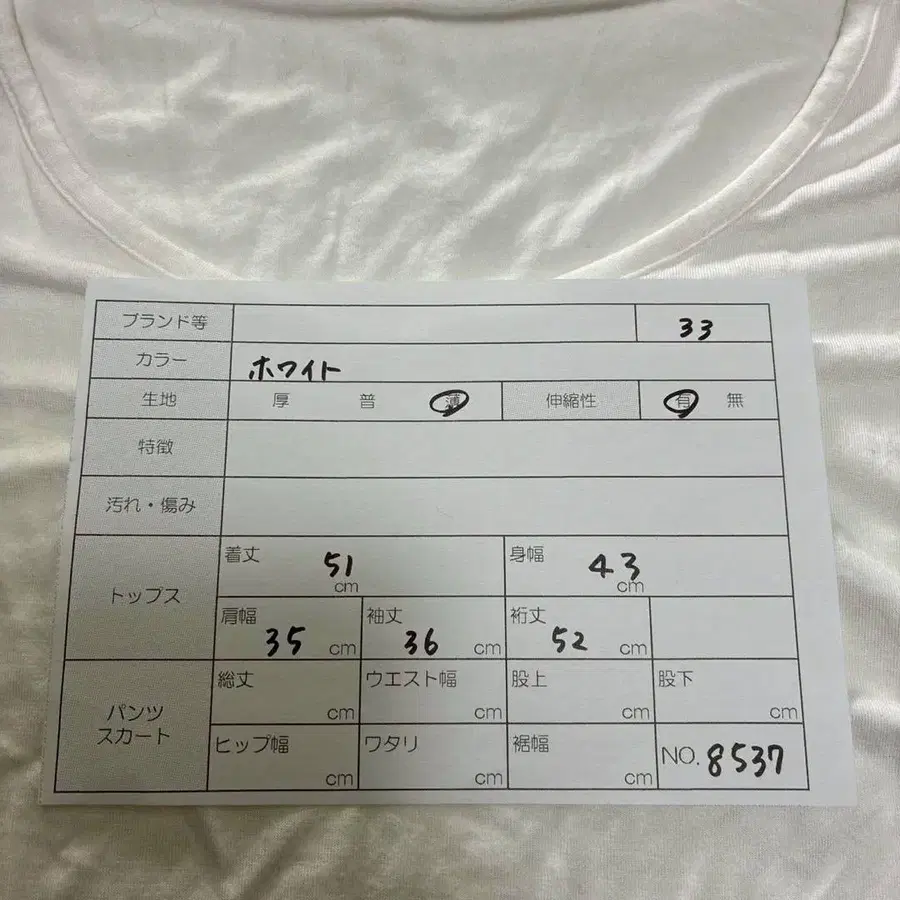 ブランド等 33
カラー ホワイト
生地 厚 普 薄 伸縮性 有 無
特徴
汚れ・傷み
トップス
着丈 51 cm 身幅 43 cm
肩幅 35 cm 袖丈 36 cm 裄丈 52 cm
パンツ
スカート
総丈 cm ウエスト幅 cm 股上 cm 股下 cm
ヒップ幅 cm ワタリ cm 裾幅 cm NO. 8537